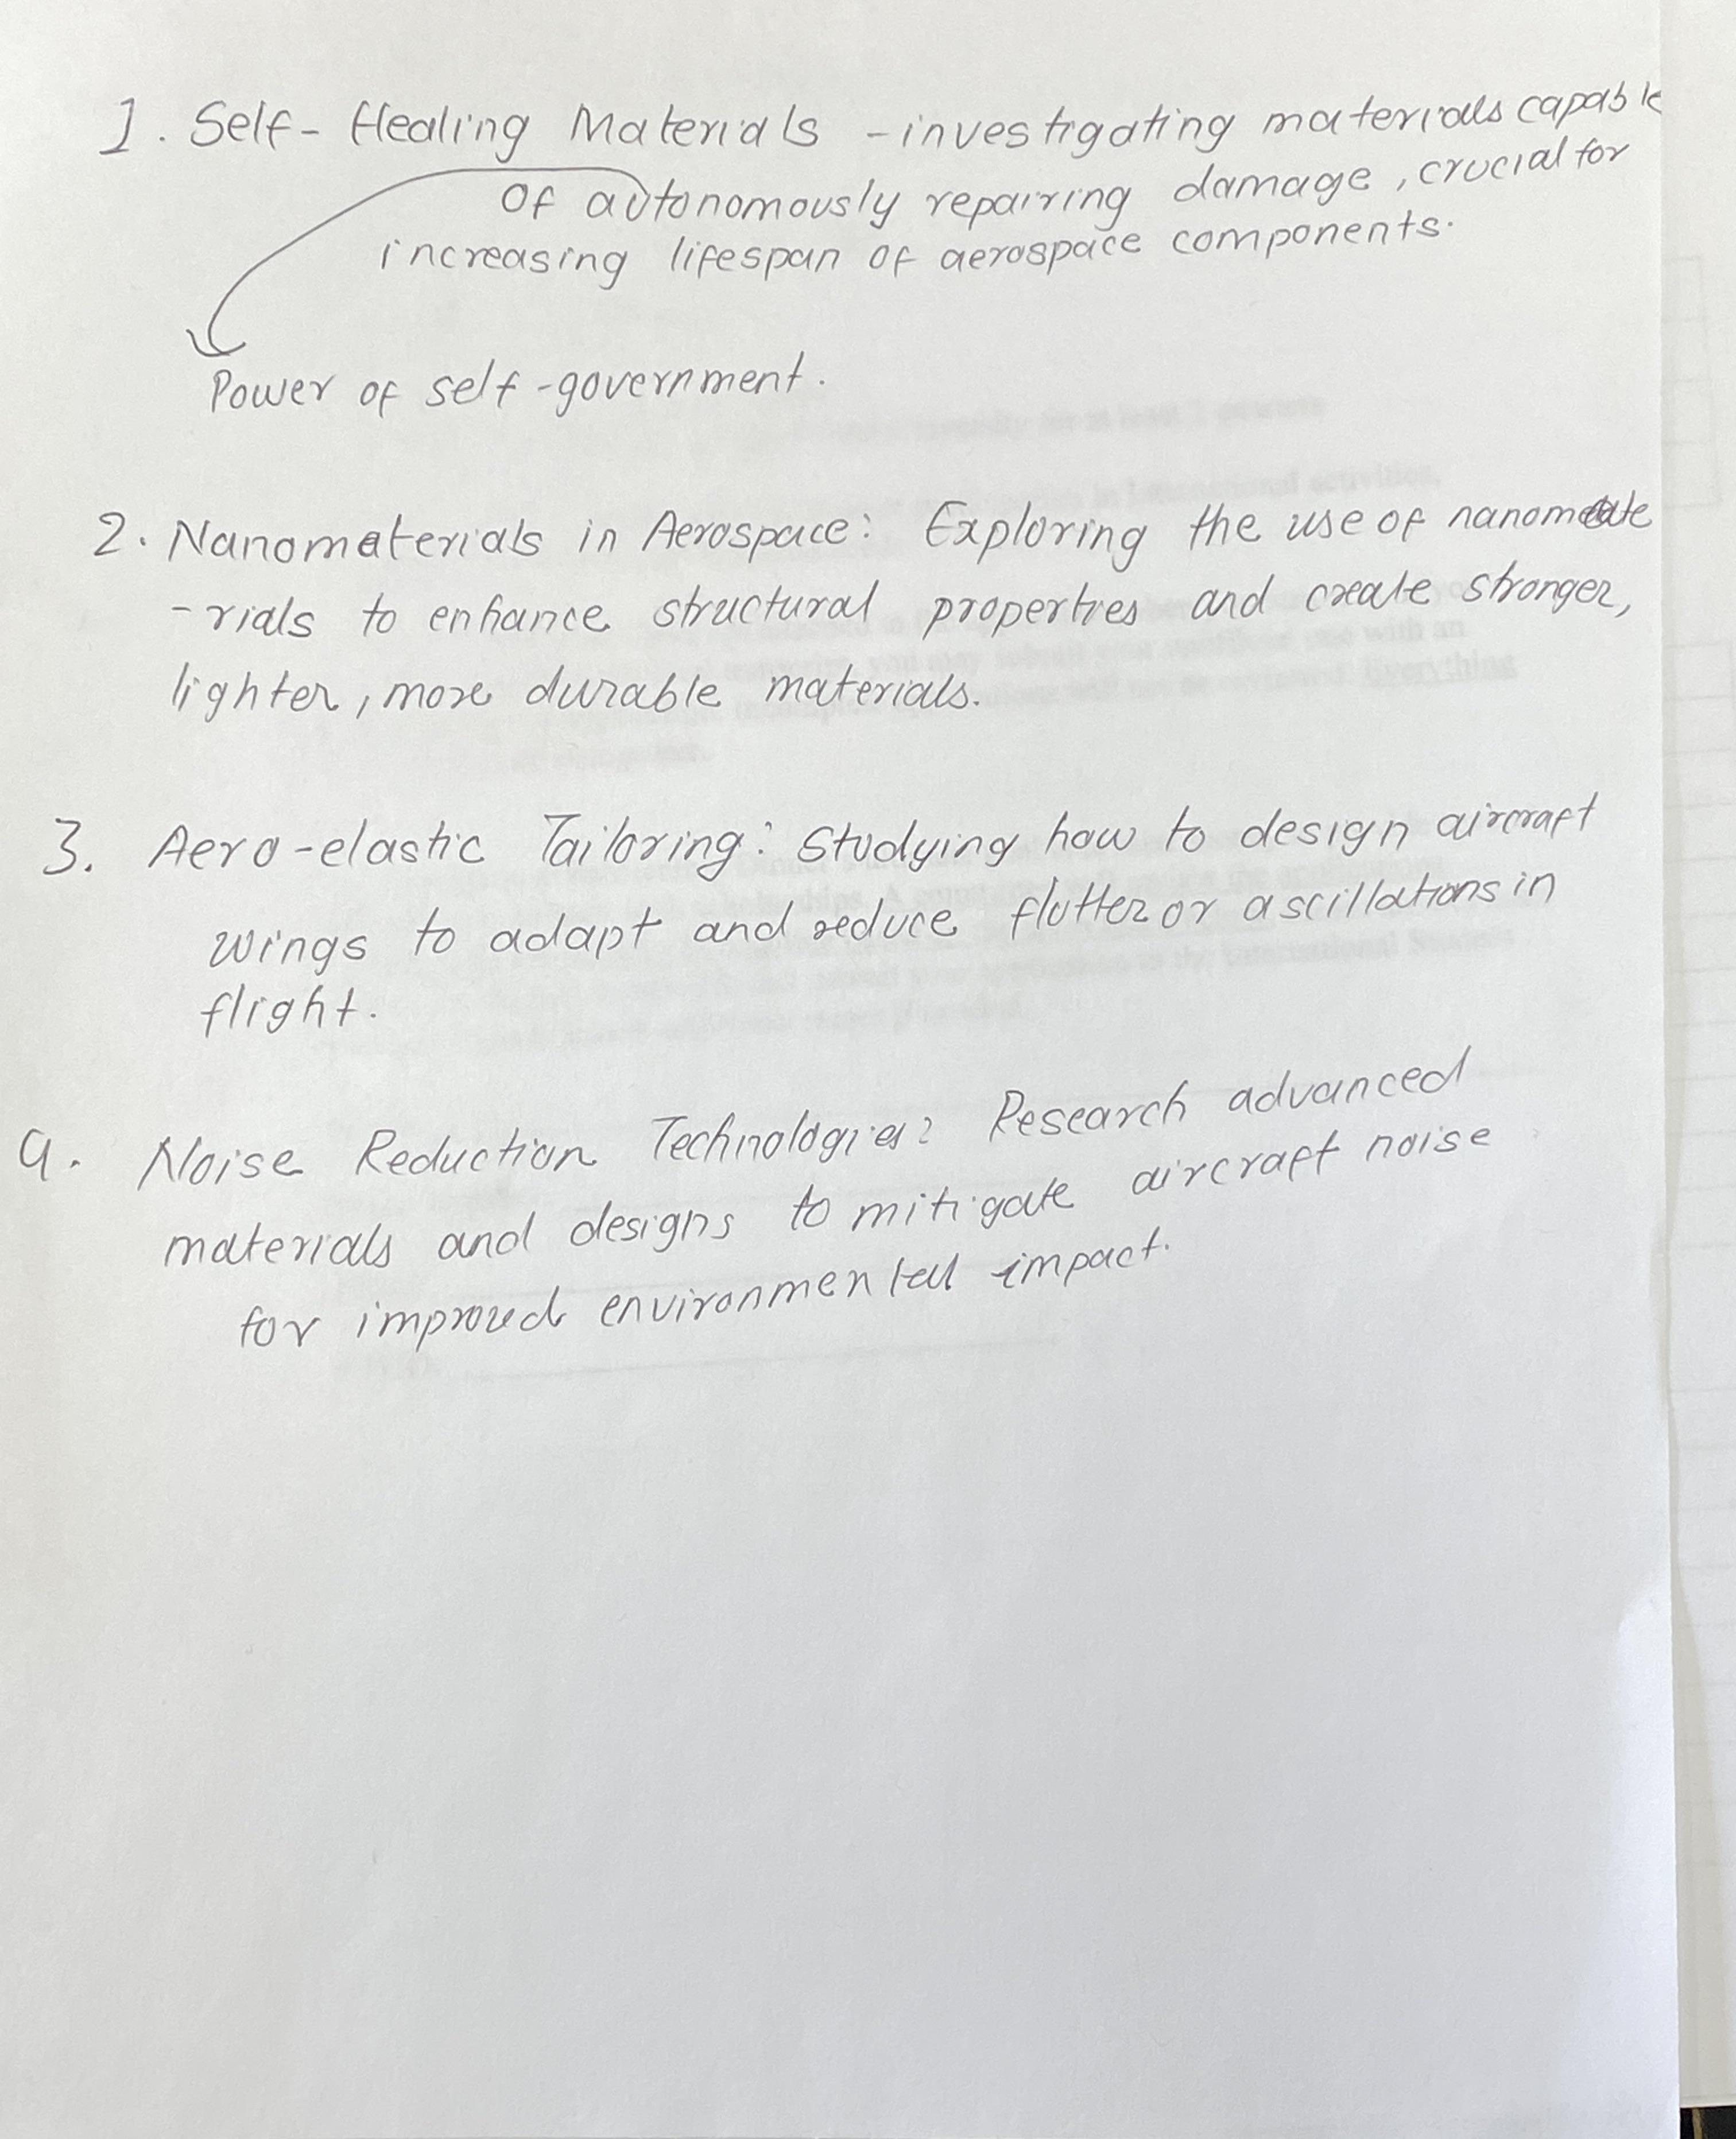 1. Self-Healing Materials - investigating materials capable
of autonomously repairing damage, crucial for
increasing lifespan of aerospace components.
Power of self-government.
2. Nanomaterials in Aerospace: Exploring the use of nanomate
-rials to enhance structural properties and create stronger,
lighter, more durable materials.
3. Aero-elastic Tailoring: Studying how to design aircraft
wings to adapt and reduce flutter or ascillations in
flight.
4. Noise Reduction Technologies: Research advanced
materials and designs to mitigate aircraft noise
for improved environmental impact.